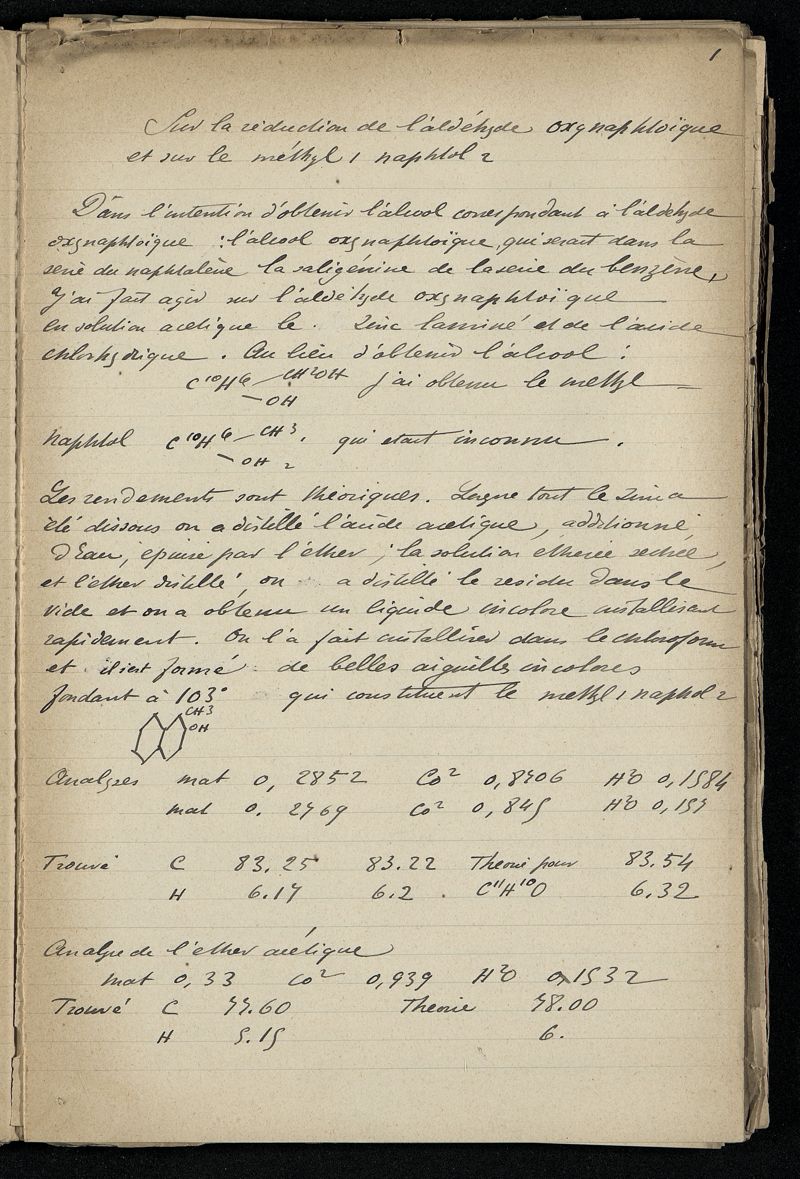 1
Sur la réduction de l'aldéhyde oxynaphtoïque
et sur le méthyl 1 naphtol 2
Dans l'intention d'obtenir l'alcool correspondant à l'aldehyde
oxynaphtoïque : l'alcool oxynaphtoïque, qui serait dans la
serie du naphtalène la saligénine de la serie du benzène,
j'ai fait agir sur l'aldéhyde oxynaphtoïque
en solution acetique le . Zinc laminé et de l'acide
chlorhydrique . Au lieu d'obtenir l'alcool :
C10H6 — CH2OH j'ai obtenu le methyl —
— OH
naphtol C10H6 — CH3. qui etait inconnu .
— OH 2
Les rendements sont théoriques. Lorsque tout le Zinc a
été dissous on a distillé l'acide acetique, additionné
d'Eau, epuisé par l'éther ; la solution etherée sechée,
et l'ether distillé, on a distillé le residu dans le
vide et on a obtenu un liquide incolore cristallisant
rapidement. On l'a fait cristalliser dans le chloroform
et il s'est formé de belles aiguilles incolores
fondant à 103° qui constituent le methyl 1 naphol 2
CH3
OH
Analyses mat 0, 2852 Co2 0,8706 H2O 0,1584
mat 0. 2769 Co2 0,845 H2O 0,157
Trouvé C 83.25 83.22 Theorie pour 83.54
H 6.17 6.2 . C11H10O 6.32
Analyse de l'ether acétique
mat 0,33 Co2 0,939 H2O 0,1532
Trouvé C 77.60 Theorie 78.00
H 5.15 6.